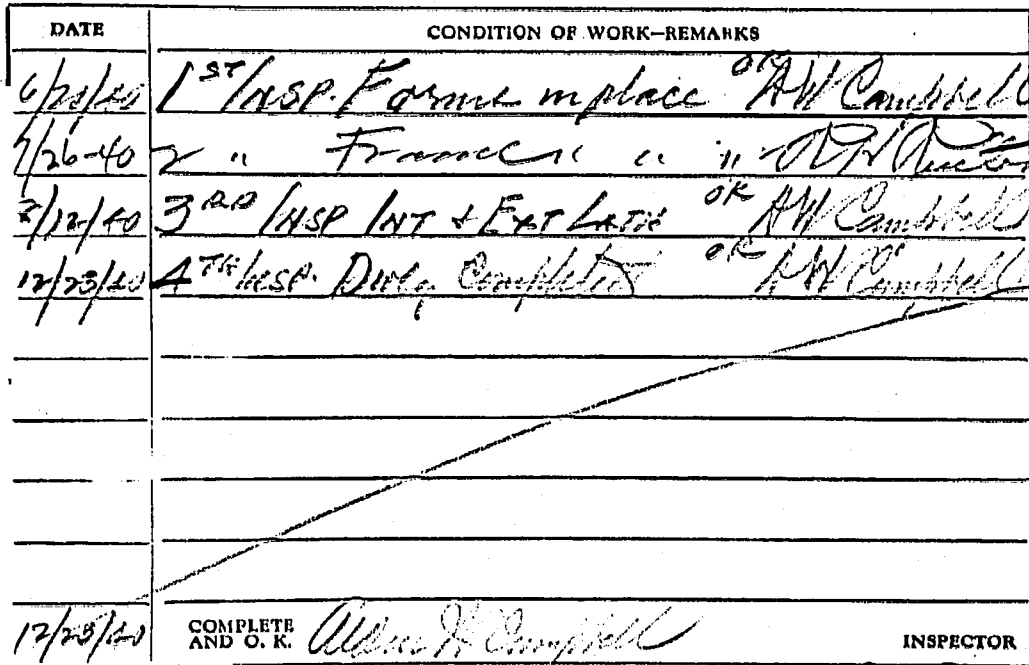 DATE CONDITION OF WORK—REMARKS
6/20/40 1ST INSP. Forms in place OK AW Campbell
7/26-40 2 " Frame " " "
/12/40 3RD INSP INT & EXT LATH OK AW Campbell
12/23/40 4TH INSP. Dwlg Completed OK AW Campbell
12/23/40 COMPLETE AND O. K. Campbell INSPECTOR